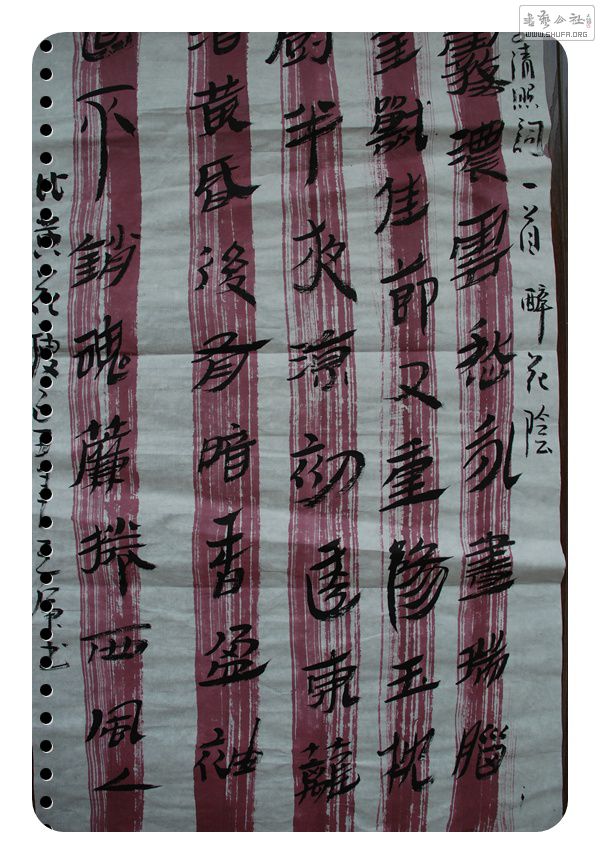 書藝公社
WWW.SHUFA.ORG
清照詞一首 醉花陰
霧濃雲愁永晝瑞腦
獸佳節又重陽玉枕
廚半夜涼初透東籬
黃昏後有暗香盈袖
不銷魂簾捲西風人
比黃花瘦